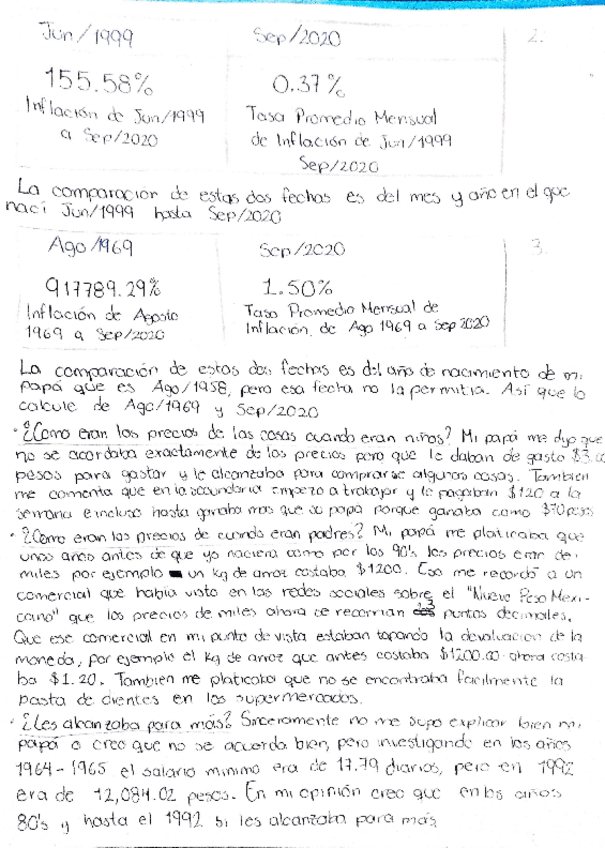 Jun/1999 Sep/2020 2.
155.58% 0.37%
Inflación de Jun/1999 Tasa Promedio Mensual
a Sep/2020 de Inflación de Jun/1999
Sep/2020
La comparación de estas dos fechas es del mes y año en el que
nací Jun/1999 hasta Sep/2020
Ago/1969 Sep/2020 3.
917789.29% 1.50%
Inflación de Agosto Tasa Promedio Mensual de
1969 a Sep/2020 Inflación de Ago 1969 a Sep 2020
La comparación de estas dos fechas es del año de nacimiento de mi
papá que es Ago/1958, pero esa fecha no la permitia. Así que lo
calcule de Ago/1969 y Sep/2020
· ¿Como eran los precios de las cosas cuando eran niños? Mi papá me dijo que
no se acordaba exactamente de los precios pero que le daban de gasto
pesos para gastar y le alcanzaba para comprarse algunas cosas. Tambien
me comenta que en la secundaria empezo a trabajar y le pagaban $120 a la
semana e incluso hasta ganaba mas que su papá porque ganaba como $70 pesos
· ¿Como eran los precios de cuando eran padres? Mi papá me platicaba que
unos años antes de que yo naciera como por los 90's los precios eran de
miles por ejemplo un kg de arroz costaba $1200. Eso me recordó a un
comercial que había visto en las redes sociales sobre el "Nuevo Peso Mexi-
cano" que los precios de miles ahora se recorrian 3 puntos decimales.
Que ese comercial en mi punto de vista estaban tapando la devaluación de la
moneda, por ejemplo el kg de arroz que antes costaba $1200.00 ahora costa-
ba $1.20. Tambien me platicaba que no se encontraba facilmente la
pasta de dientes en los supermercados.
· ¿Les alcanzaba para más? Sinceramente no me supo explicar bien mi
papá o creo que no se acuerda bien, pero investigando en los años
1964-1965 el salario minimo era de 17.79 diarios, pero en 1992
era de 12,084.02 pesos. En mi opinión creo que en los años
80's y hasta el 1992 si les alcanzaba para más